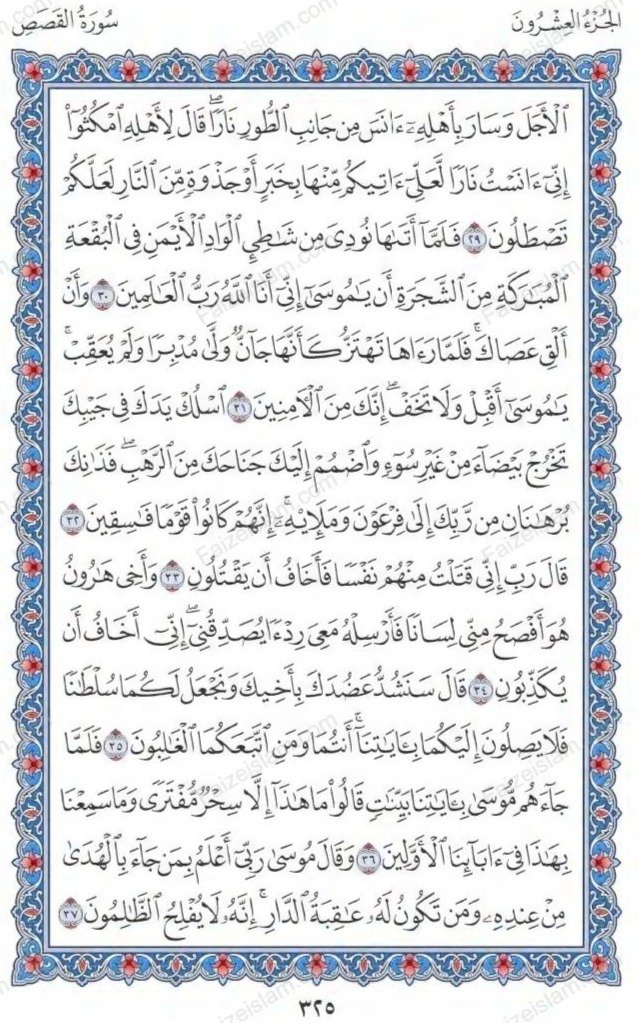 الجُزْءُ العِشْرُونَ
سُورَةُ القَصَصِ
ٱلْأَجَلَ وَسَارَ بِأَهْلِهِۦٓ ءَانَسَ مِن جَانِبِ ٱلطُّورِ نَارًاۖ قَالَ لِأَهْلِهِ ٱمْكُثُوٓا۟
إِنِّىٓ ءَانَسْتُ نَارًا لَّعَلِّىٓ ءَاتِيكُم مِّنْهَا بِخَبَرٍ أَوْ جَذْوَةٍ مِّنَ ٱلنَّارِ لَعَلَّكُمْ
تَصْطَلُونَ ٢٩ فَلَمَّآ أَتَىٰهَا نُودِىَ مِن شَٰطِئِ ٱلْوَادِ ٱلْأَيْمَنِ فِى ٱلْبُقْعَةِ
ٱلْمُبَٰرَكَةِ مِنَ ٱلشَّجَرَةِ أَن يَٰمُوسَىٰٓ إِنِّىٓ أَنَا ٱللَّهُ رَبُّ ٱلْعَٰلَمِينَ ٣٠ وَأَنْ
أَلْقِ عَصَاكَۚ فَلَمَّا رَءَاهَا تَهْتَزُّ كَأَنَّهَا جَآنٌّ وَلَّىٰ مُدْبِرًا وَلَمْ يُعَقِّبْۚ
يَٰمُوسَىٰٓ أَقْبِلْ وَلَا تَخَفْۖ إِنَّكَ مِنَ ٱلْءَامِنِينَ ٣١ ٱسْلُكْ يَدَكَ فِى جَيْبِكَ
تَخْرُجْ بَيْضَآءَ مِنْ غَيْرِ سُوٓءٍ وَٱضْمُمْ إِلَيْكَ جَنَاحَكَ مِنَ ٱلرَّهْبِۖ فَذَٰنِكَ
بُرْهَٰنَانِ مِن رَّبِّكَ إِلَىٰ فِرْعَوْنَ وَمَلَإِيْهِۦٓۚ إِنَّهُمْ كَانُوا۟ قَوْمًا فَٰسِقِينَ ٣٢
قَالَ رَبِّ إِنِّى قَتَلْتُ مِنْهُمْ نَفْسًا فَأَخَافُ أَن يَقْتُلُونِ ٣٣ وَأَخِى هَٰرُونُ
هُوَ أَفْصَحُ مِنِّى لِسَانًا فَأَرْسِلْهُ مَعِىَ رِدْءًا يُصَدِّقُنِىٓۖ إِنِّىٓ أَخَافُ أَن
يُكَذِّبُونِ ٣٤ قَالَ سَنَشُدُّ عَضُدَكَ بِأَخِيكَ وَنَجْعَلُ لَكُمَا سُلْطَٰنًا
فَلَا يَصِلُونَ إِلَيْكُمَا بِـَٔايَٰتِنَآۚ أَنتُمَا وَمَنِ ٱتَّبَعَكُمَا ٱلْغَٰلِبُونَ ٣٥ فَلَمَّا
جَآءَهُم مُّوسَىٰ بِـَٔايَٰتِنَا بَيِّنَٰتٍ قَالُوا۟ مَا هَٰذَآ إِلَّا سِحْرٌ مُّفْتَرًى وَمَا سَمِعْنَا
بِهَٰذَا فِىٓ ءَابَآئِنَا ٱلْأَوَّلِينَ ٣٦ وَقَالَ مُوسَىٰ رَبِّىٓ أَعْلَمُ بِمَن جَآءَ بِٱلْهُدَىٰ
مِنْ عِندِهِۦ وَمَن تَكُونُ لَهُۥ عَٰقِبَةُ ٱلدَّارِۚ إِنَّهُۥ لَا يُفْلِحُ ٱلظَّٰلِمُونَ ٣٧
٣٢٥
Faizeislam.com